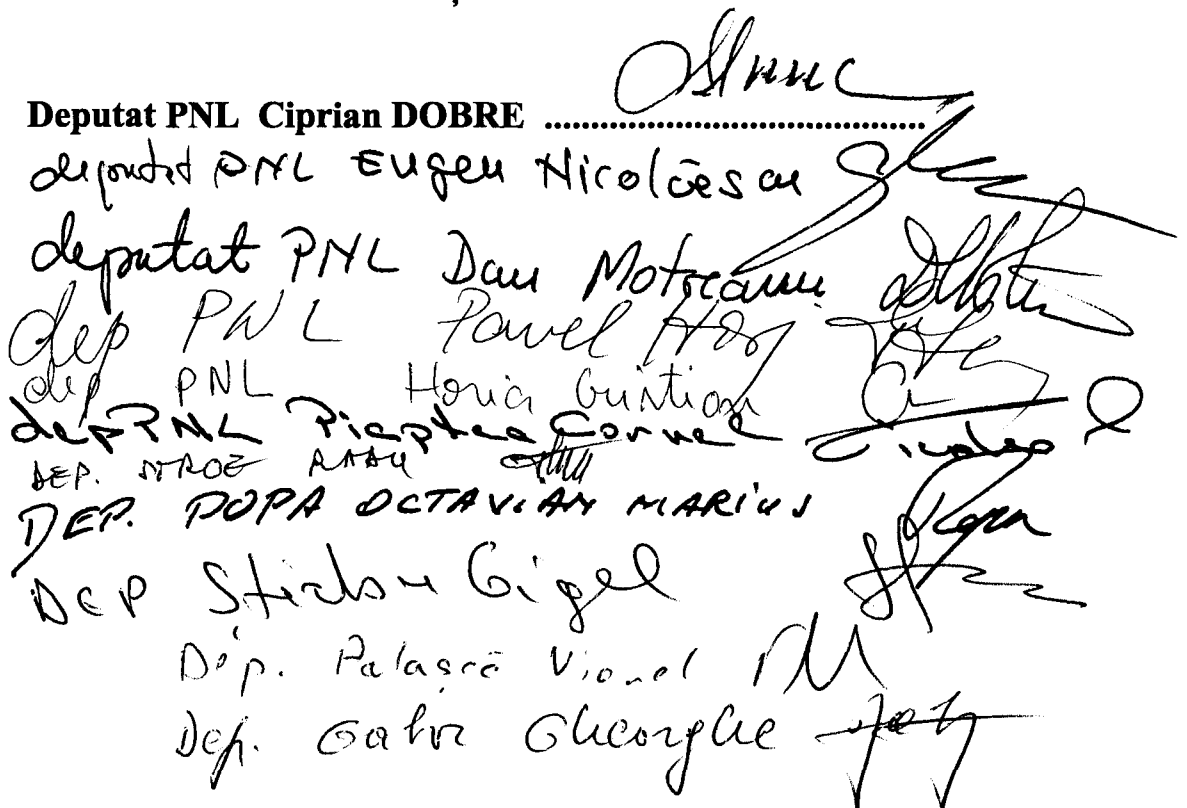 Deputat PNL Ciprian DOBRE ........................................
deputat PNL Eugen Nicolăescu
deputat PNL Dan Motreanu
dep PNL Pavel Horj
dep PNL Horia Cristian
dep PNL Pieptea Cornel
DEP. STROE RADU
DEP. POPA OCTAVIAN MARIUS
DEP Știrbu Gigel
Dep. Palașcă Viorel
Dep. Gabor Gheorghe